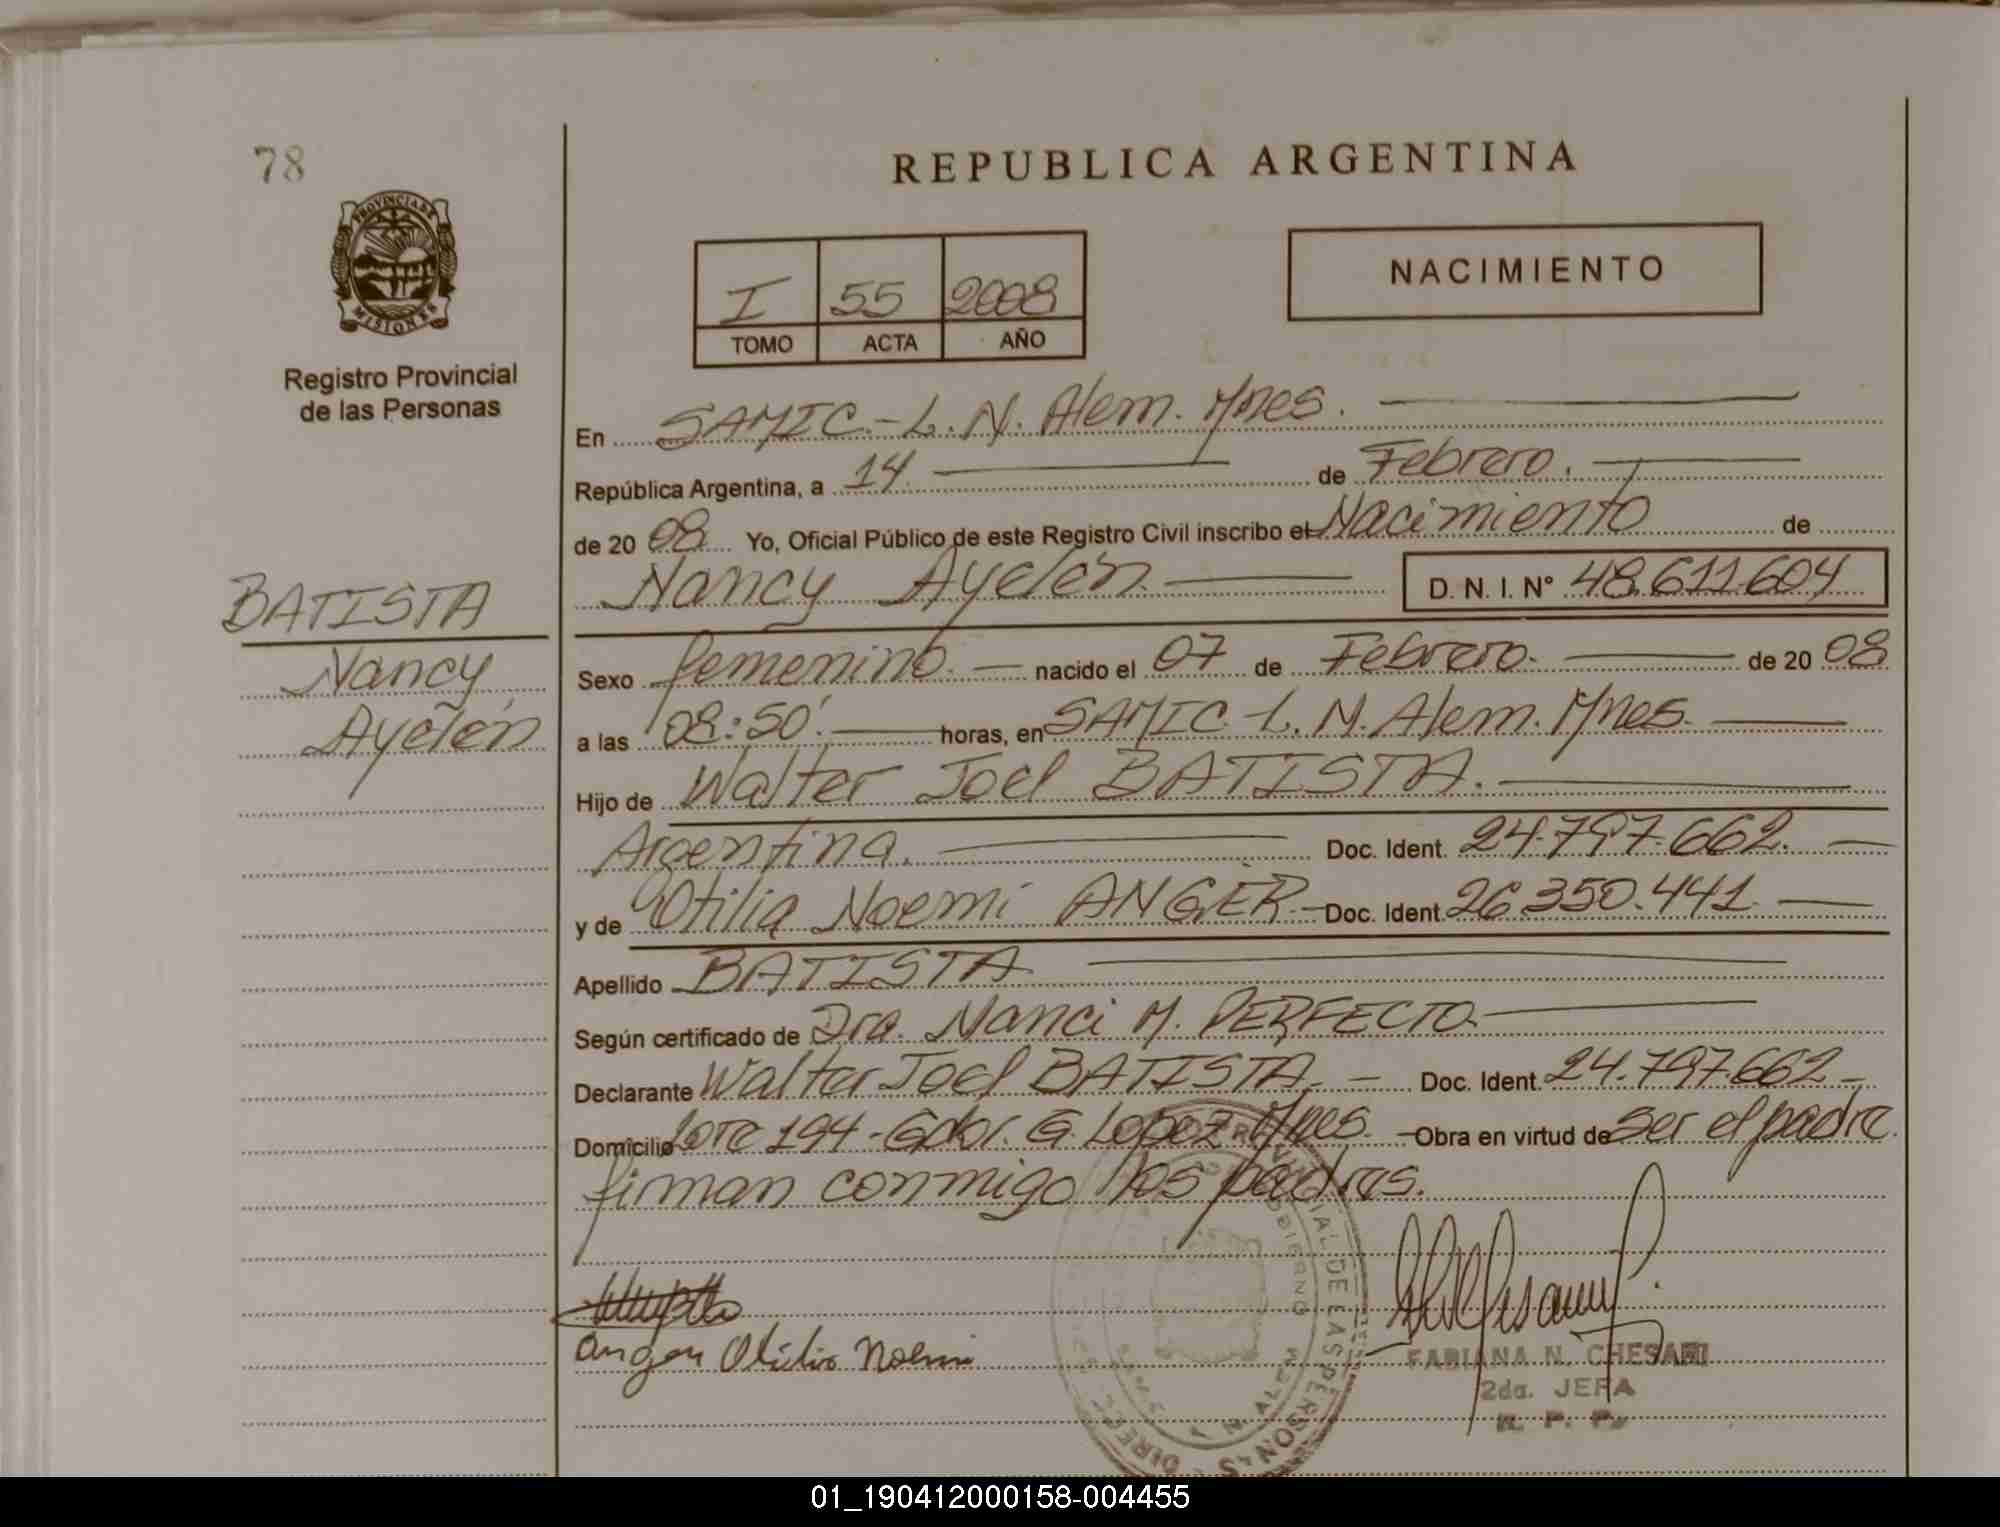 78
REPUBLICA ARGENTINA
PROVINCIA DE
MISIONES
Registro Provincial
de las Personas
I 55 2008
TOMO ACTA AÑO
NACIMIENTO
En SAMIC.-L. N. Alem. Mnes.
República Argentina, a 14 de Febrero.
de 20 08 Yo, Oficial Público de este Registro Civil inscribo el Nacimiento de
Nancy Ayelén D. N. I. N° 48.611.604
BATISTA
Nancy
Ayelén
Sexo femenino. nacido el 07 de Febrero. de 20 08
a las 08:50'. horas, en SAMIC.-L. N. Alem. Mnes.
Hijo de Walter Joel BATISTA.
Argentina. Doc. Ident. 24.797.662.
y de Otilia Noemi ANGER.- Doc. Ident. 26.350.441
Apellido BATISTA
Según certificado de Dra. Nanci M. PERFECTO
Declarante Walter Joel BATISTA.- Doc. Ident. 24.797.662
Domicilio Lote 194-Gdor. G. Lopez Mnes. Obra en virtud de ser el padre
firman conmigo los padres.
Noemi
FABIANA N. CHESARI
2da. JEFA
R. P. P.
01_190412000158-004455